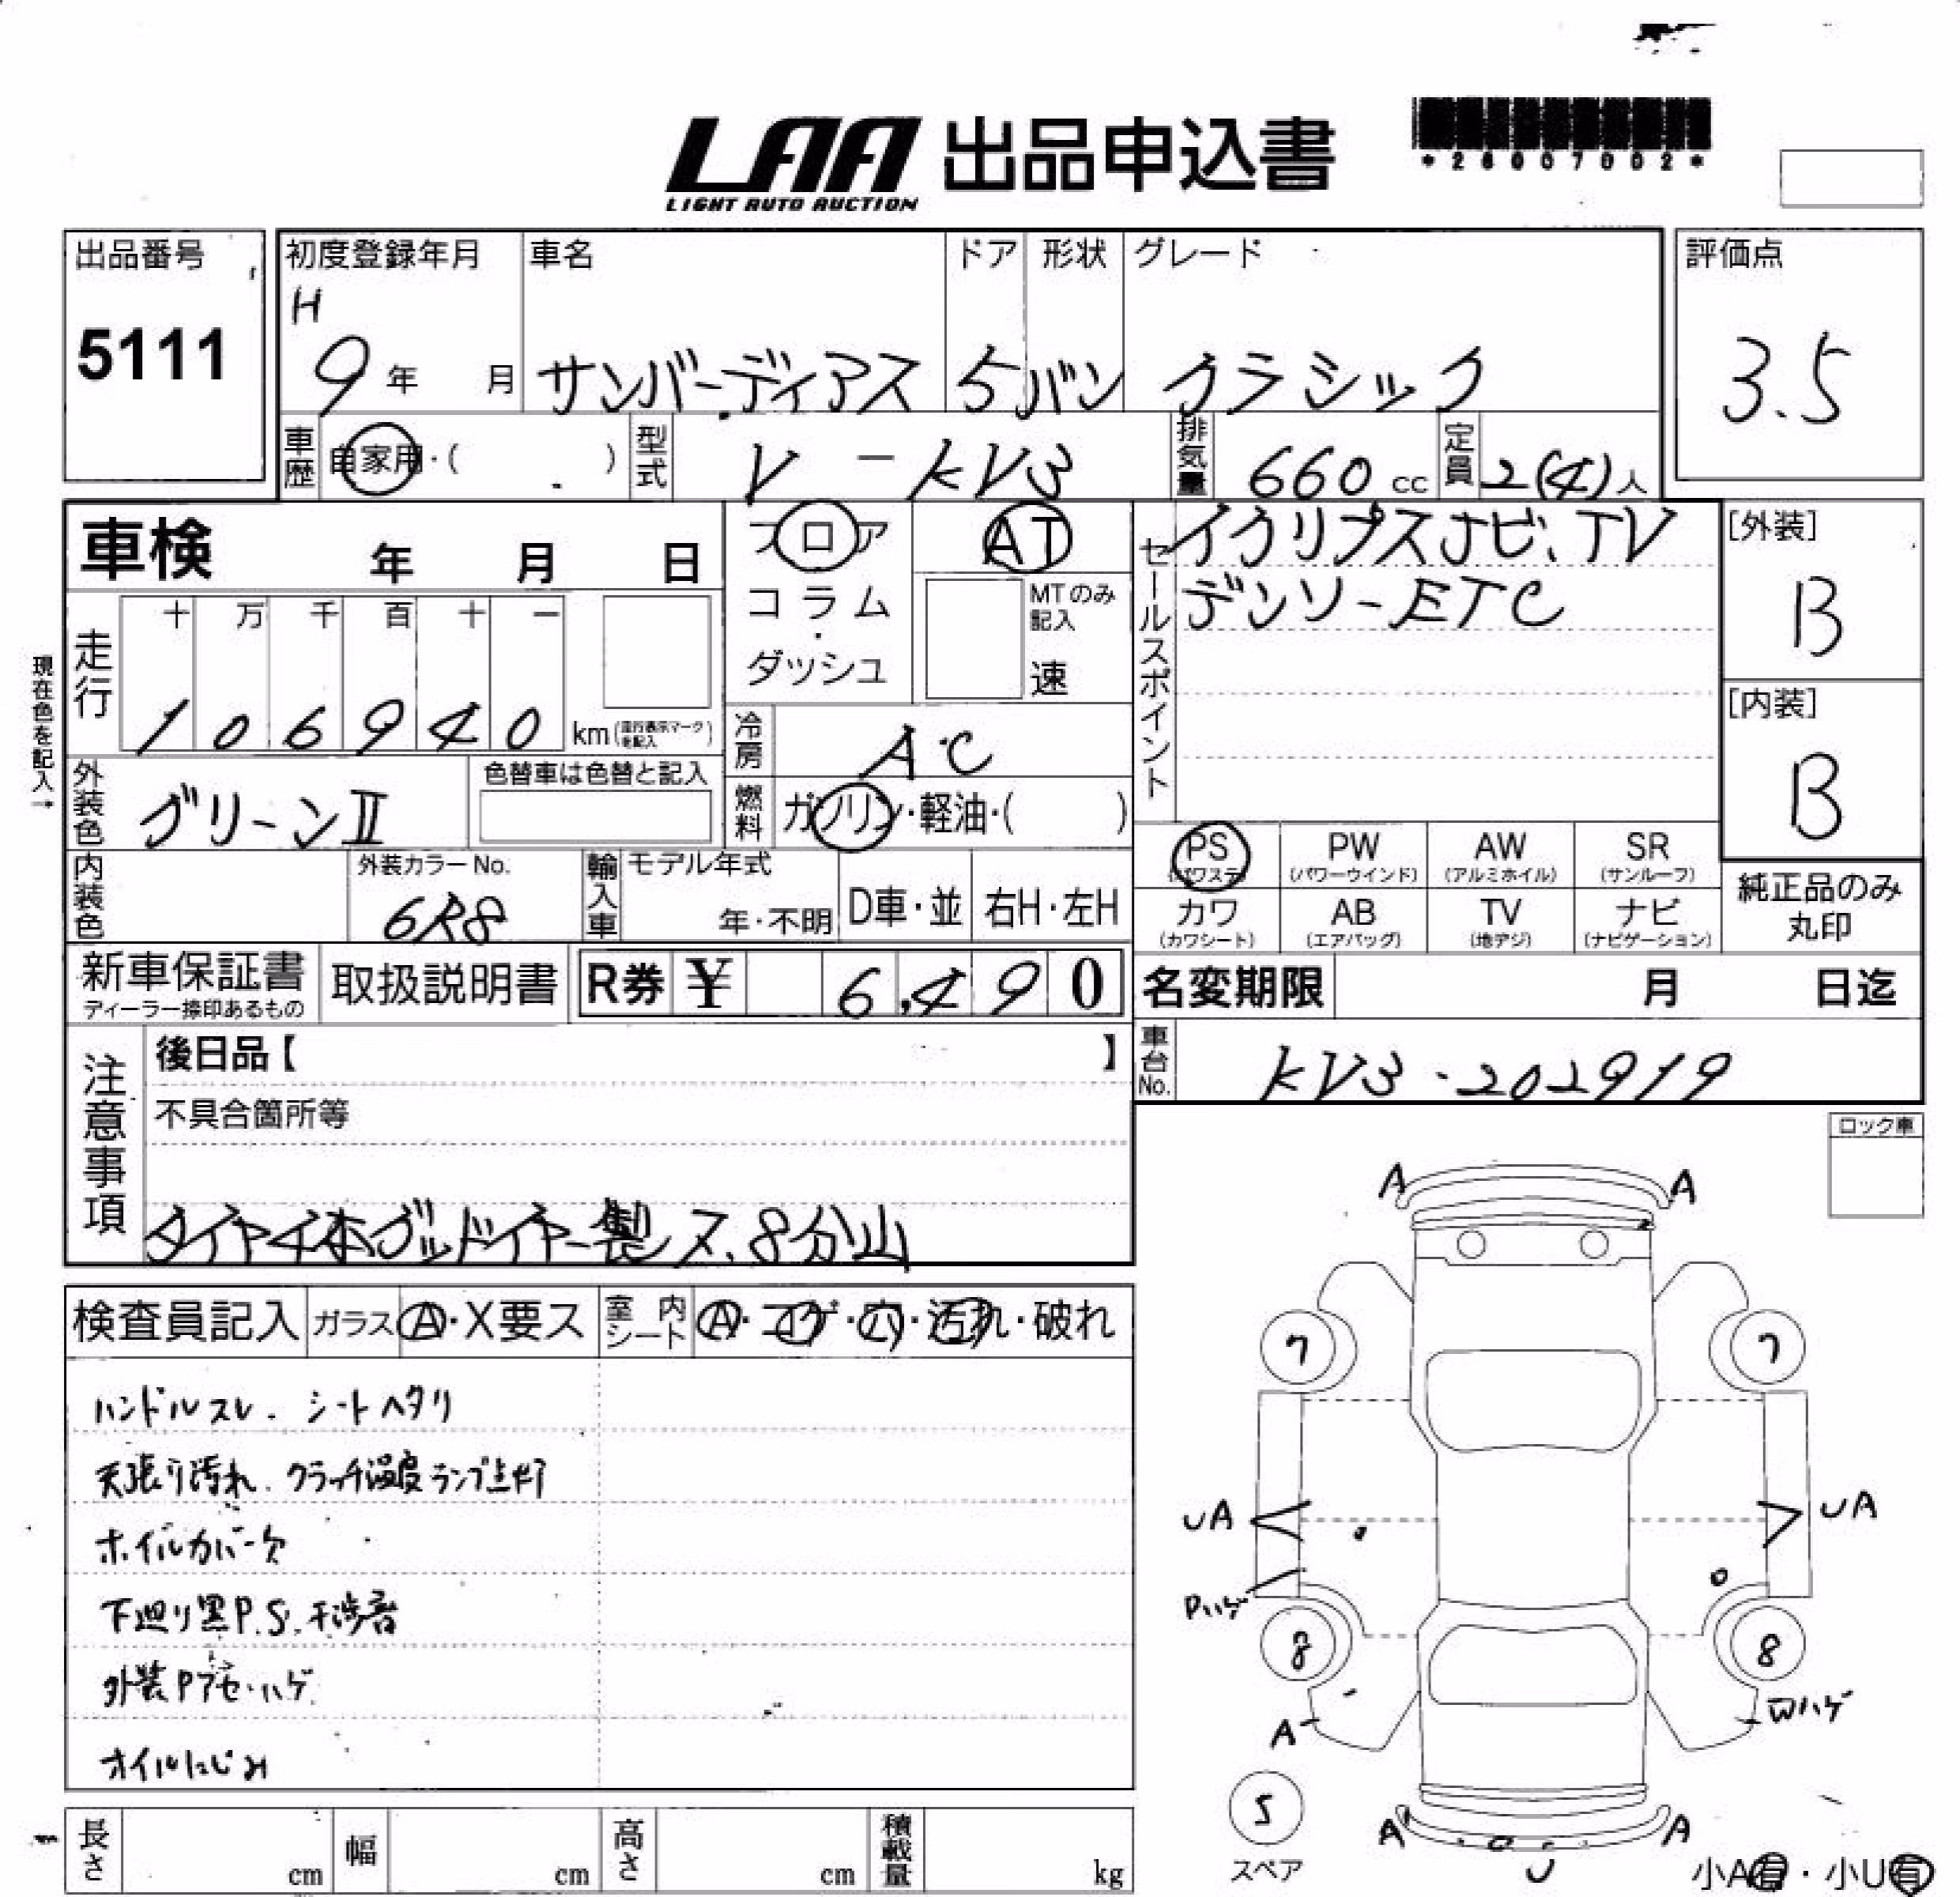 LAA 出品申込書
LIGHT AUTO AUCTION
*26007002*
出品番号
5111
初度登録年月 車名 ドア 形状 グレード
H
9年 月 サンバーディアス 5 バン クラシック
評価点
3.5
車歴 自家用・( ) 型式 V-KV3 排気量 660 cc 定員 2(4)人
車検 年 月 日
フロア
コラム
・
ダッシュ
AT
MTのみ
記入
速
セールスポイント
イクリプスナビ、TV
デンソーETC
[外装]
B
[内装]
B
現在色を記入→
走行
十 万 千 百 十 一
1 0 6 9 4 0 km (走行表示マークを記入)
冷房 AC
外装色 グリーンⅡ
色替車は色替と記入
燃料 ガソリン・軽油・( )
PS PW AW SR
(パワステ) (パワーウインド) (アルミホイル) (サンルーフ)
カワ AB TV ナビ
(カワシート) (エアバッグ) (地デジ) (ナビゲーション)
純正品のみ
丸印
内装色
外装カラーNo.
6R8
輸入車 モデル年式
年・不明 D車・並 右H・左H
新車保証書
ディーラー捺印あるもの
取扱説明書 R券 ¥ 6,490
名変期限 月 日迄
車台No. KV3-202919
注意事項
後日品【 】
不具合箇所等
タイヤ4本グッドイヤー製シス、8分山
ロック車
検査員記入 ガラス A・X要ス 室内シート A・コゲ・穴・汚れ・破れ
ハンドルスレ. シートヘタリ
天張り汚れ. クラッチ温度ランプ点灯
ホイルカバー欠
下廻り黒P.S.干渉音
外装Pアセ・ハゲ
オイルにじみ
A A
7 7
UA UA
Pハゲ
8 8
A Wハゲ
5
スペア
A A
U
小A有・小U有
長さ cm 幅 cm 高さ cm 積載量 kg